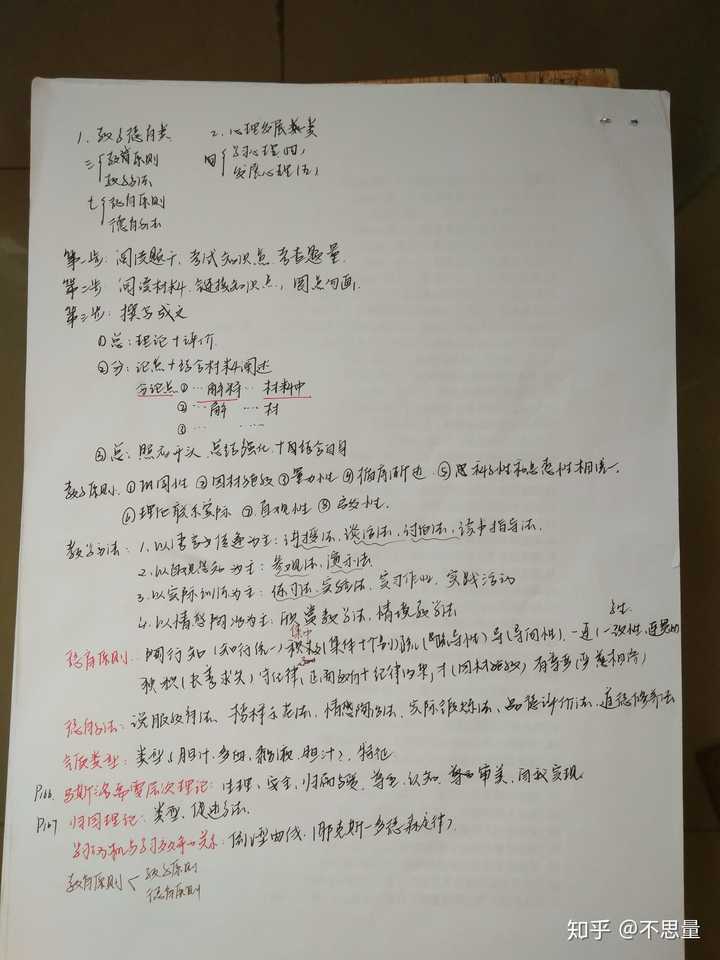 1. 教学德育类 2. 心理发展类
三个 教育原则 四个 学习心理
教学方法 发展心理
七个 德育原则
德育方法
第一步：阅读题干、考试知识点、考查题量
第二步 阅读材料、链接知识点，圈点勾画.
第三步：撰写成文
①总：理论+评价
②分：论点+结合材料阐述
分论点① …解释… 材料中
② …解 … 材
③ … …
③总：照应开头、总结强化+自结合自身
教学原则. ①巩固性 ②因材施教 ③量力性 ④循序渐进 ⑤思 科学性和思想性相统一.
⑥理论联系实际 ⑦直观性 ⑧启发性.
教学方法：1. 以语言传递为主：讲授法、谈话法、讨论法、读书指导法.
2. 以直观感知为主：参观法、演示法
3. 以实际训练为主：练习法、实验法、实习作业、实践活动
4. 以情感陶冶为主：欣赏教学法、情境教学法
德育原则. 知（知行统一）集（集体+个别）（疏导性）导（导向性）. 一连（一致性、连贯
性.
积（长善求失）守纪律，正面教育+纪律约束，才（因材施教）有尊严（严慈相济）
德育方法：说服教育法、榜样示范法、情感陶冶法、实际锻炼法、品德评价法、道德修养法
气质类型：类型（胆汁、多血、黏液、）、特征
P166 马斯洛需要层次理论：生理、安全、归属与爱、尊重、认知、审美、自我实现
P167 归因理论：类型、促进方法.
学习动机与学习效率的关系：倒U型曲线.（耶克斯-多德森定律）
教育原则 < 教学原则
德育原则
知乎 @不思量